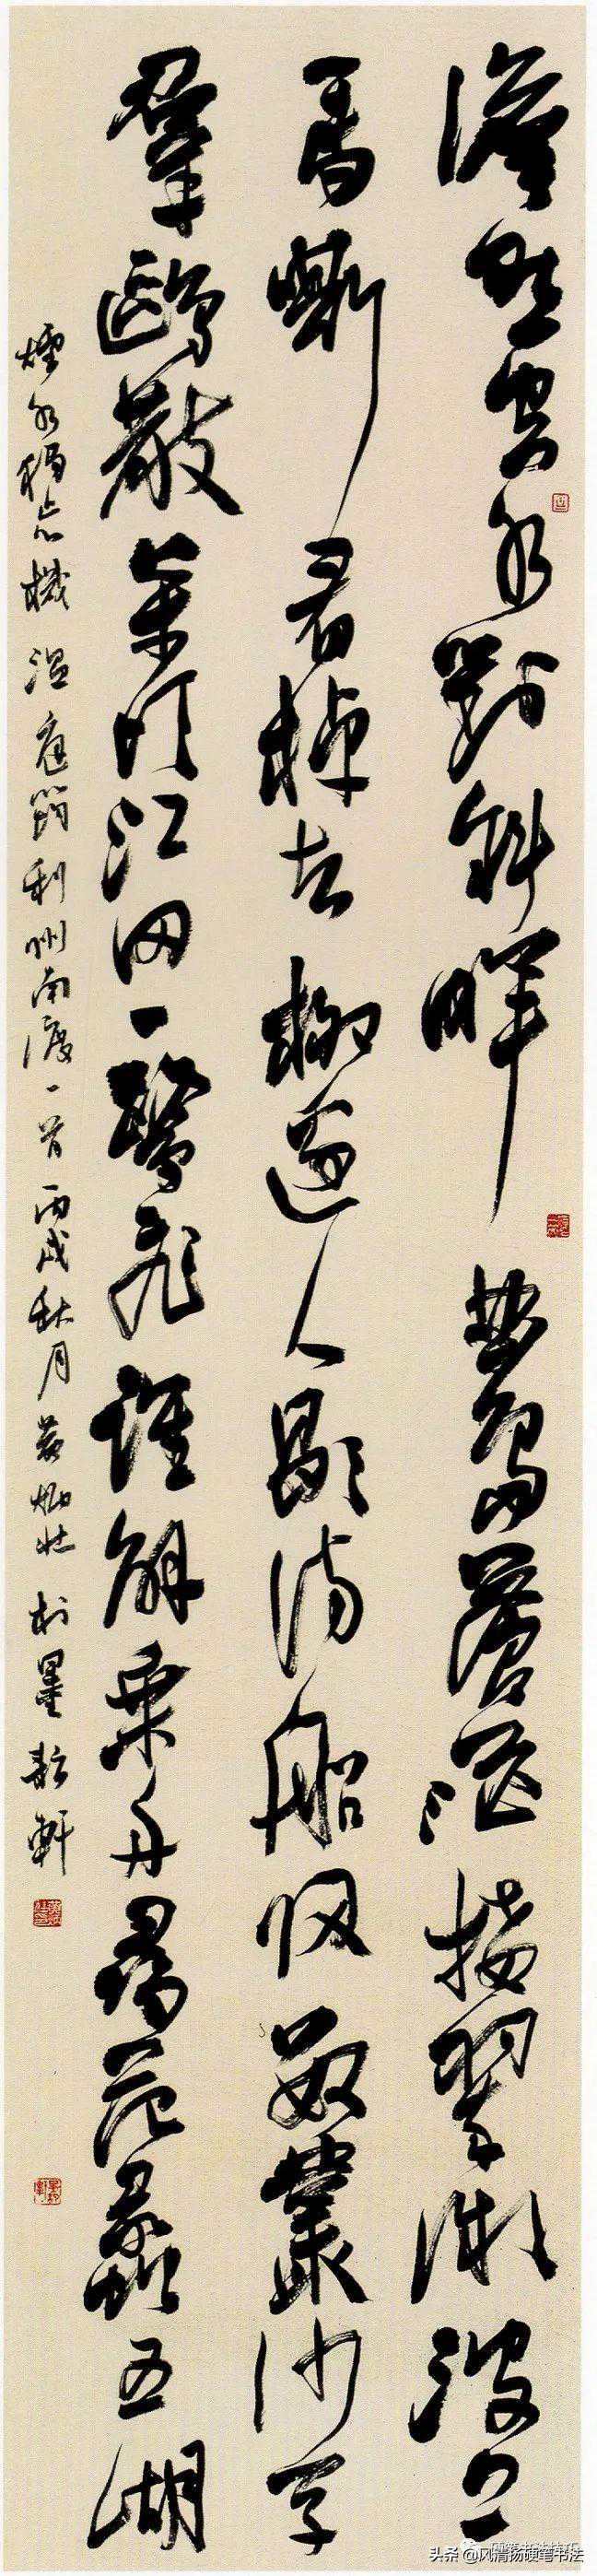 澹然空水對斜暉曲島蒼茫接翠微波上
馬嘶看棹去柳邊人歇待船歸數叢沙草
羣鷗散萬頃江田一鷺飛誰解乘舟尋范蠡五湖
煙水獨忘機溫庭筠利州南渡一首丙戌秋月於墨耘軒
头条 @风清扬硬笔书法